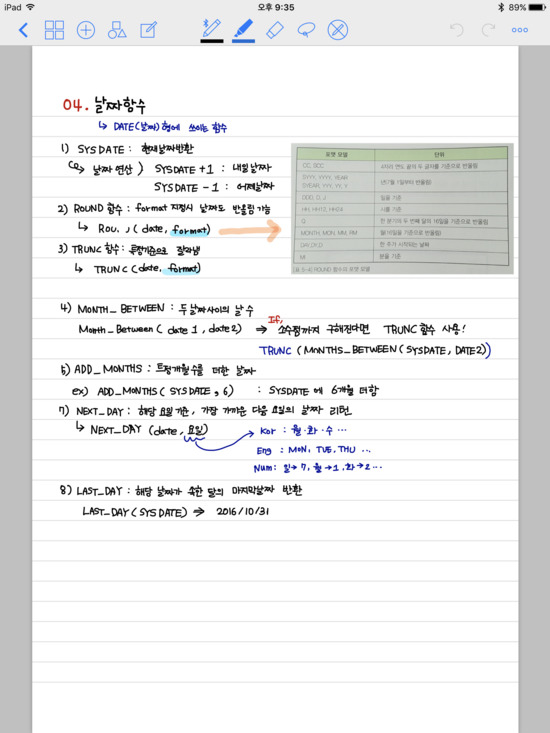 iPad
오후 9:35
89%
04. 날짜함수
↳ DATE(날짜)형에 쓰이는 함수
1) SYSDATE : 현재날짜반환
날짜 연산 ) SYSDATE +1 : 내일날짜
SYSDATE -1 : 어제날짜
2) ROUND 함수 : format 지정시 날짜도 반올림 가능
↳ ( date, format)
3) TRUNC 함수 : 특정기준으로 잘라냄
↳ TRUNC (date, format)
포맷 모델 단위
CC, SCC 4자리 연도 끝의 두 글자를 기준으로 반올림
SYYY, YYYY, YEAR
SYEAR, YYY, YY, Y 년(7월 1일부터 반올림)
DDD, D, J 일을 기준
HH, HH12, HH24 시를 기준
Q 한 분기의 두 번째 달의 16일을 기준으로 반올림
MONTH, MON, MM, RM 월(16일을 기준으로 반올림)
DAY, DY, D 한 주가 시작되는 날짜
MI 분을 기준
[표 5-4] ROUND 함수의 포맷 모델
4) MONTH_BETWEEN : 두 날짜사이의 날 수
If,
Month_Between ( date1, date2) ⇒ 소수점까지 구해진다면 TRUNC 함수 사용!
TRUNC (MONTHS_BETWEEN (SYSDATE, DATE2))
5) ADD_MONTHS : 특정개월수를 더한 날짜
ex) ADD_MONTHS ( SYSDATE, 6) : SYSDATE 에 6개월 더함
7) NEXT_DAY : 해당 요일 기준, 가장 가까운 다음 요일의 날짜 리턴
↳ NEXT_DAY (date, 요일)
Kor : 월·화·수 ···
Eng : MON, TUE, THU ...
Num : 일→7, 월→1, 화→2 ···
8) LAST_DAY : 해당 날짜가 속한 달의 마지막날짜 반환
LAST_DAY (SYSDATE) ⇒ 2016/10/31